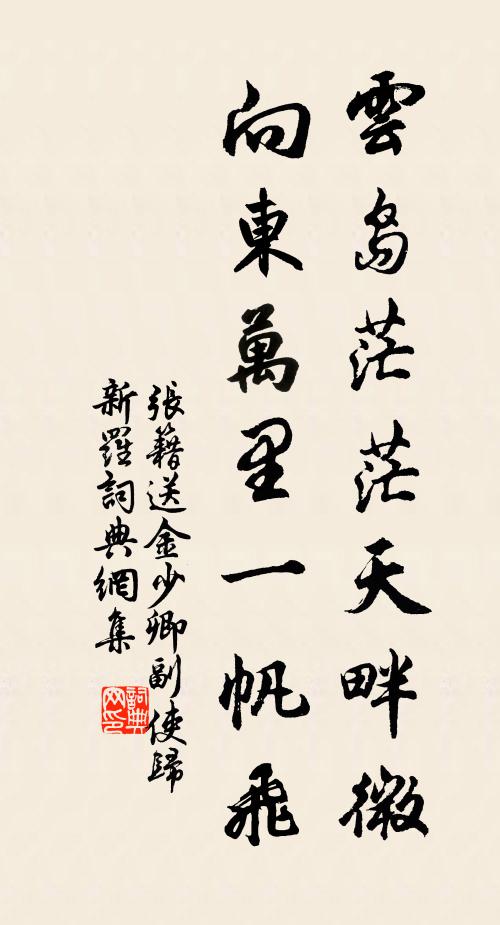 雲島茫茫天畔微
向東萬里一帆飛
張籍送金少卿副使歸
新羅詞典網集
詞典網印